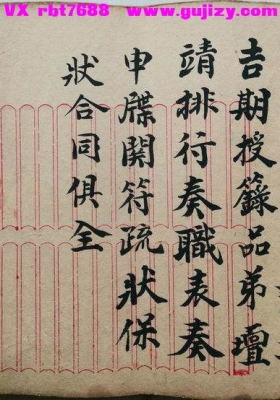 VX rbt7688 www.gujizy.com
吉期授籙品弟壇
靖排行奏職表奏
申牒関符疏狀保
狀合同俱全